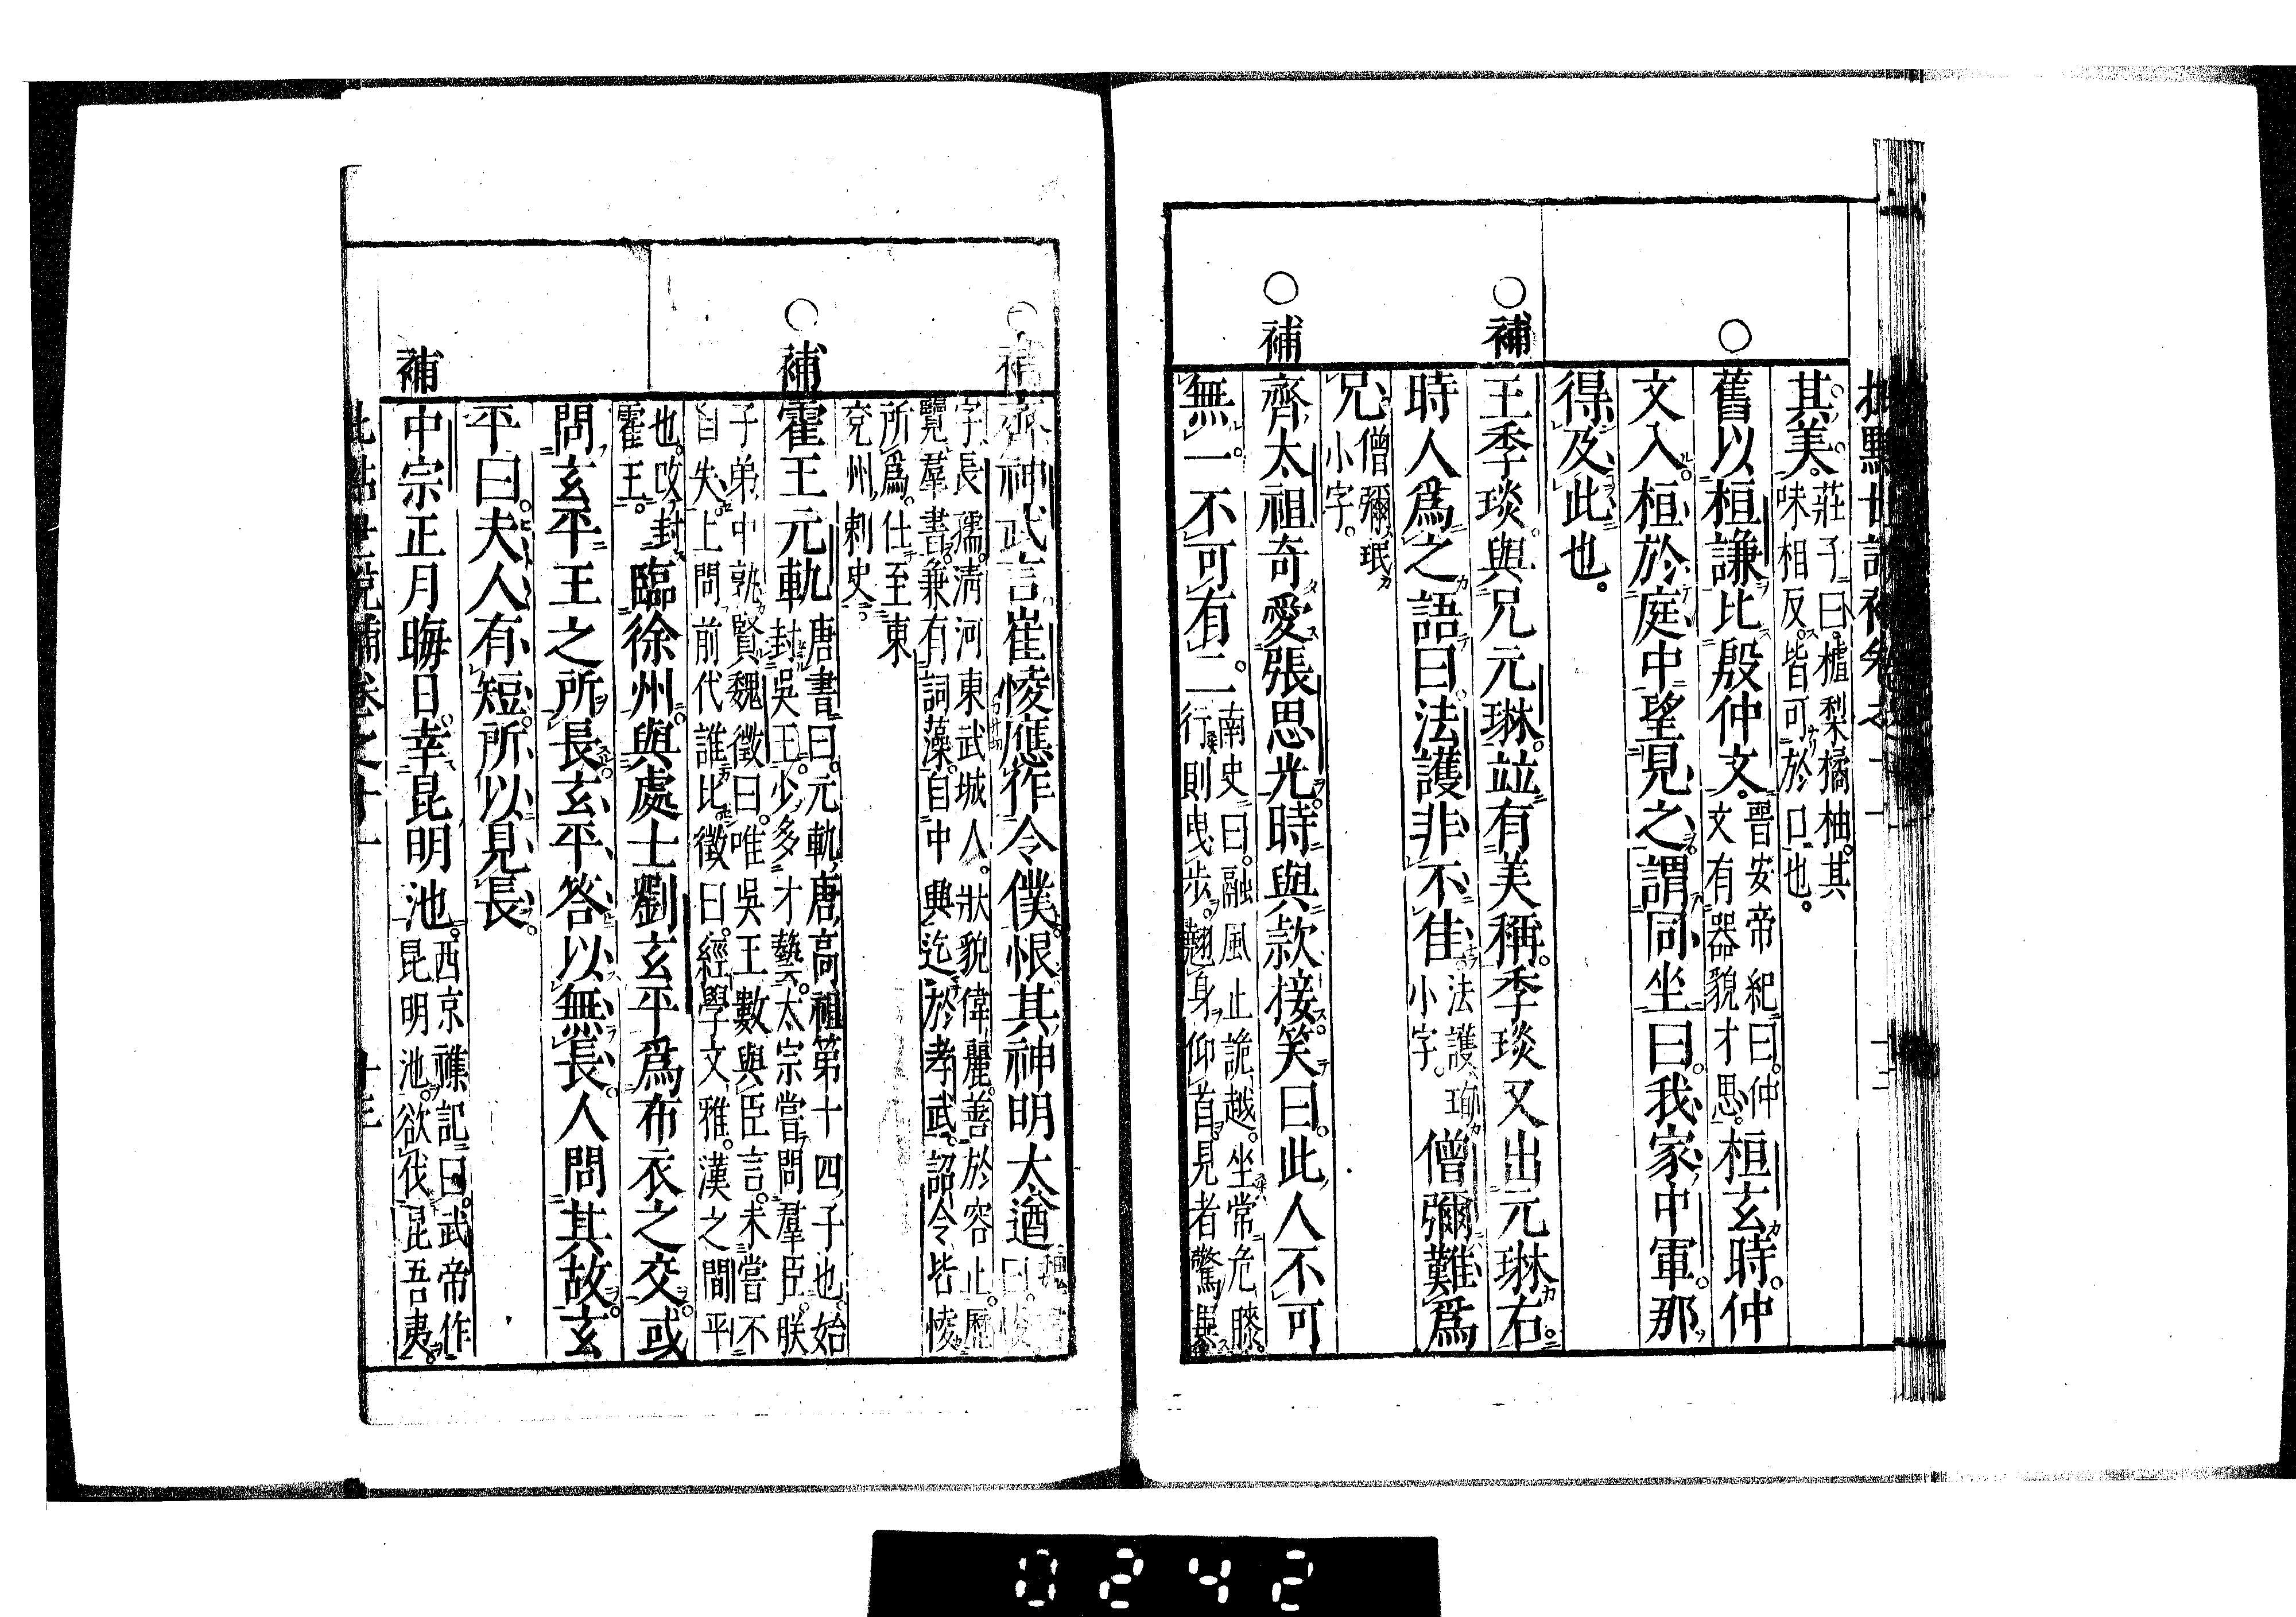 批點世說補卷之十一
十二
其美。莊子曰。樝梨橘柚。其
味相反。皆可於口也。
○
舊以桓謙比殷仲文。晉安帝紀曰。仲
文有器貌才思。桓玄時。仲
文入。桓於庭中望見之。謂同坐曰。我家中軍。那
得及此也。
○補
王季琰與兄元琳。竝有美稱。季琰又出元琳右。
時人爲之語曰。法護非不佳。法護、珣
小字。僧彌難爲
兄。僧彌、珉
小字。
○補
齊太祖奇愛張思光。時與款接。笑曰。此人不可
無一。不可有二。南史曰。融風止詭越。坐常危膝。
行則曳步。翹身仰首。見者驚異
○補
齊神武言崔㥄應作令僕。恨其神明太遒。
曰。㥄
字長孺。淸河東武城人。狀貌偉麗。善於容止。歷
覽羣書。兼有詞藻。自中興迄於孝武。詔令皆㥄
所爲。仕至東
兗州刺史。
○補
霍王元軌唐書曰。元軌、唐高祖第十四子也。始
封吳王。少多才藝。太宗嘗問羣臣。朕
子弟中孰賢。魏徵曰。唯吳王數與臣言。未嘗不
自失。上問前代誰比。徵曰。經學文雅。漢之間平
也。改封
霍王。臨徐州。與處士劉玄平爲布衣之交。或
問玄平王之所長。玄平答以無長。人問其故。玄
平曰。夫人有短。所以見長。
補
中宗正月晦日。幸昆明池。西京襍記曰。武帝作
昆明池。欲伐昆吾夷。
批點世說補卷之十一
十三
0242